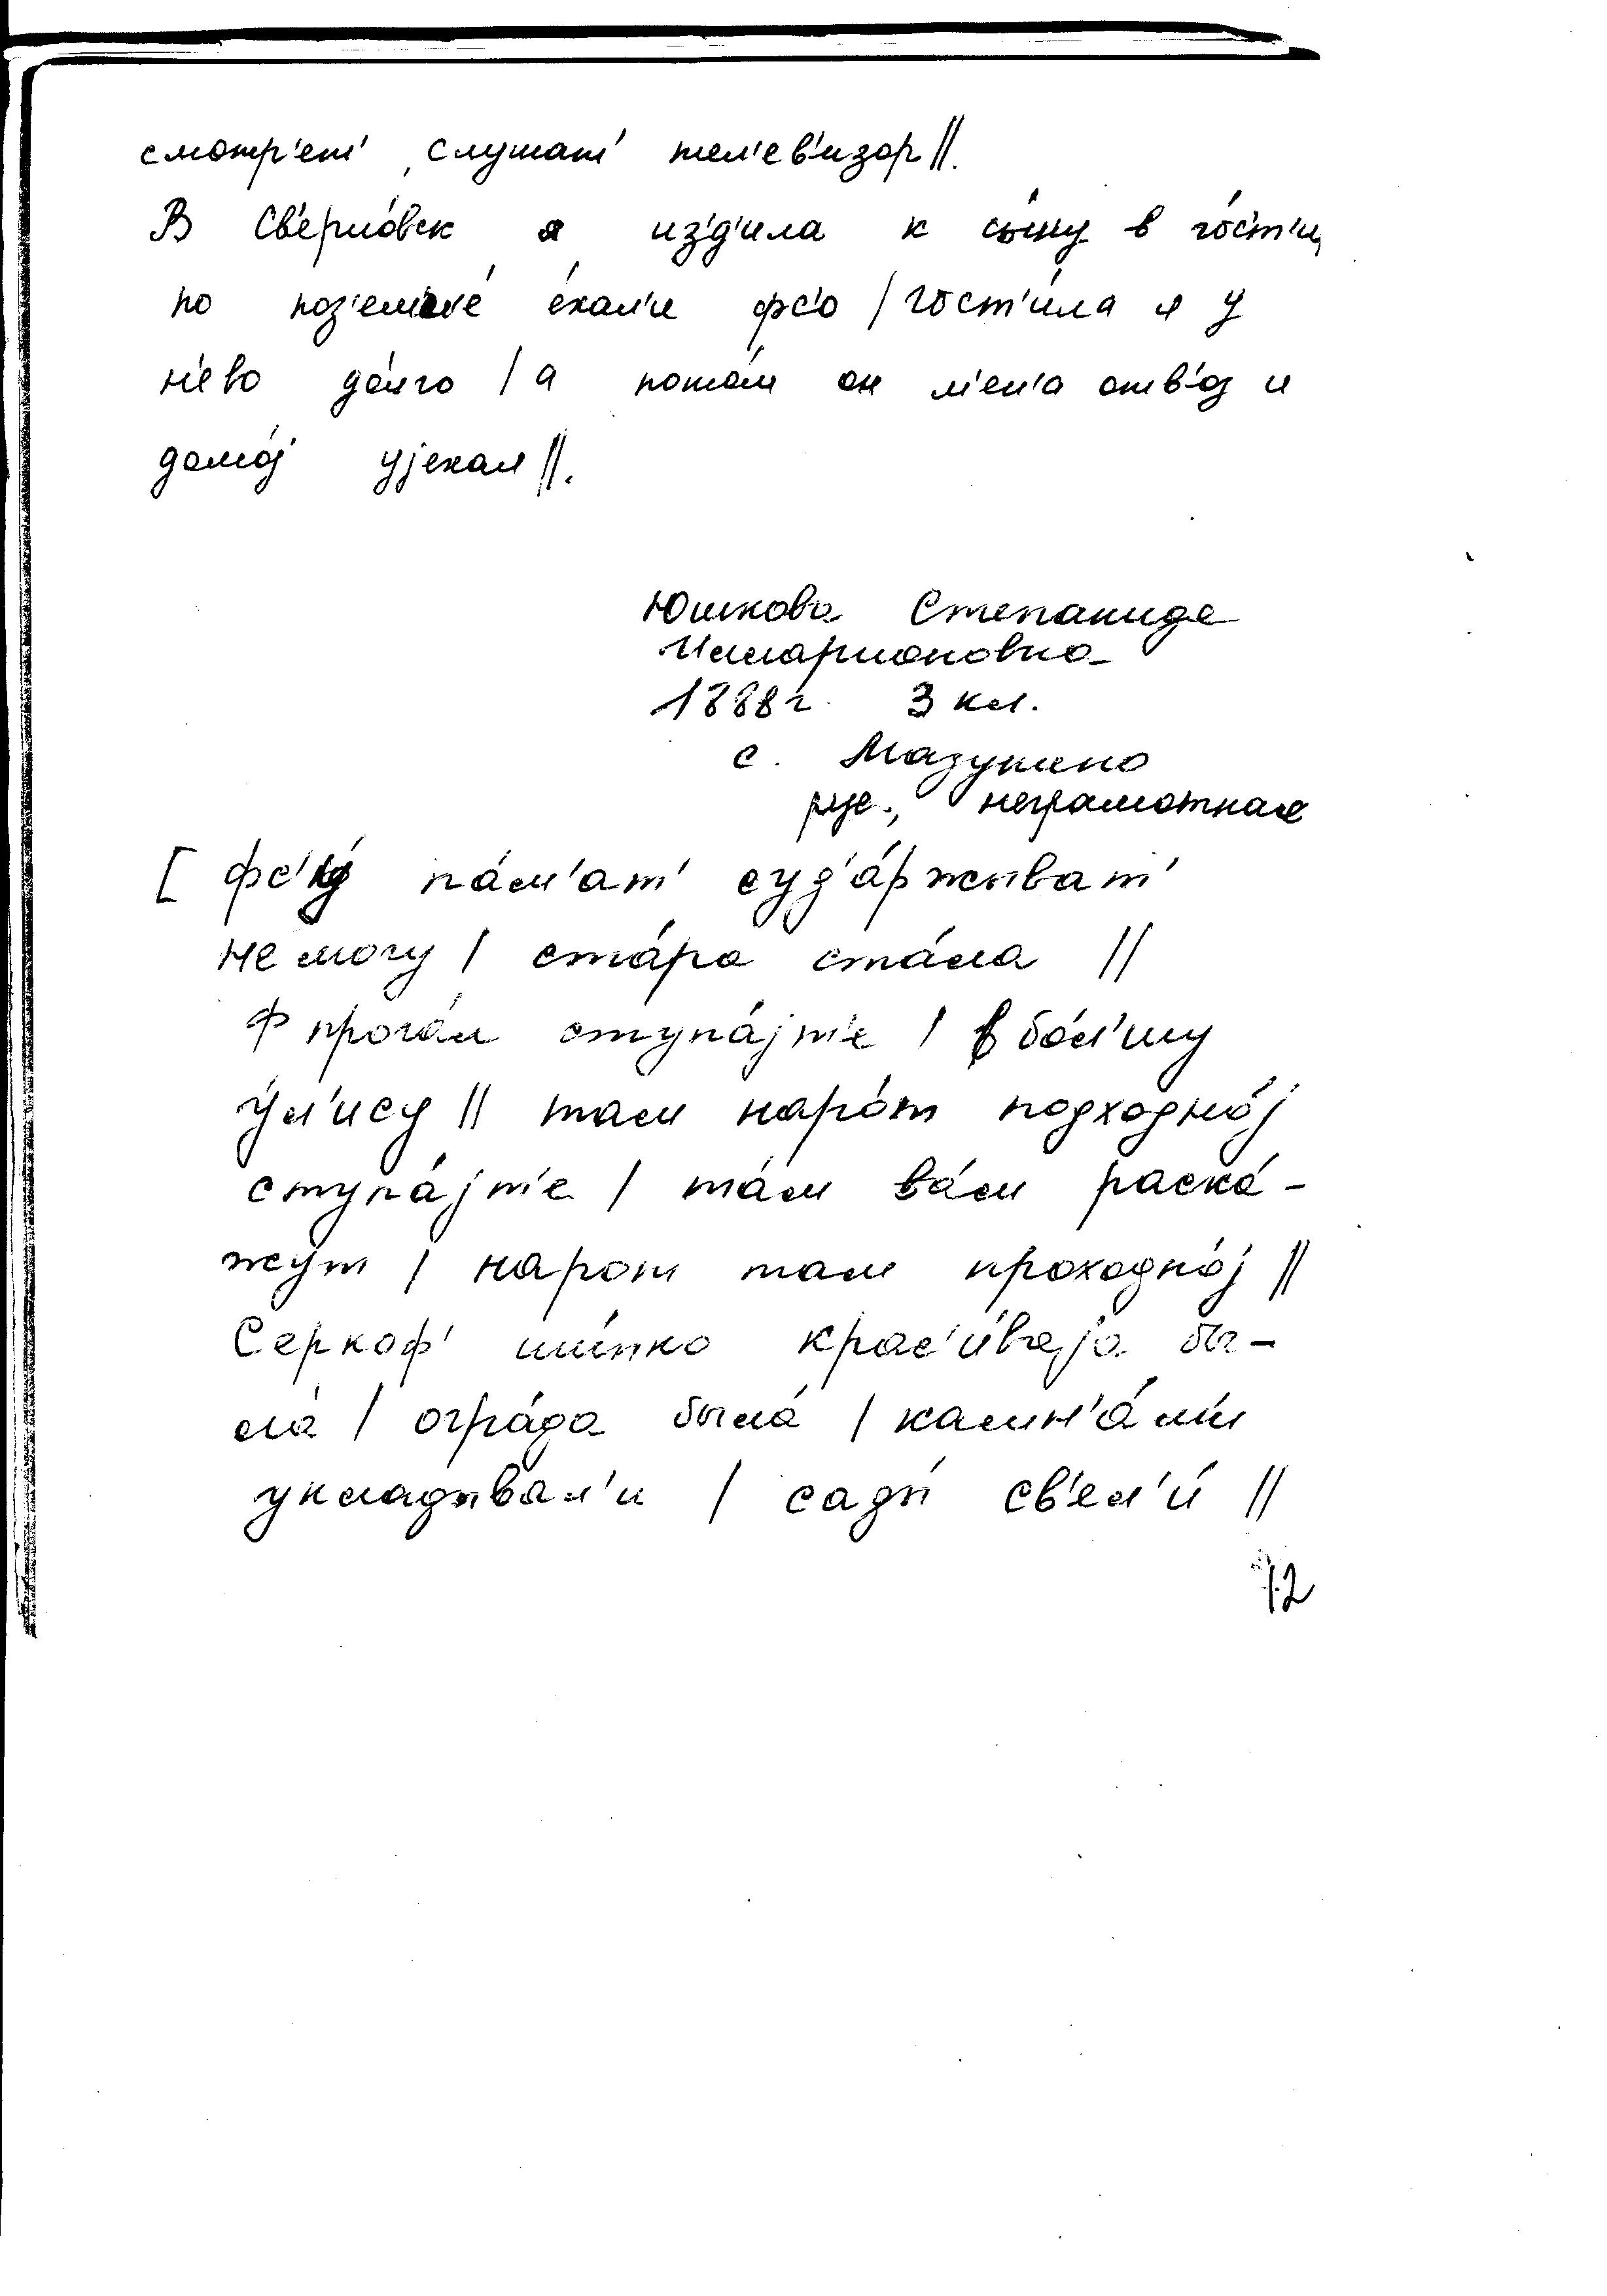 смотр'ет' , слушат' тел'ев'изор ||.
В Св'ерло́вск я из'д'ила к сы́ну в го́ст'и,
по поз'емл'е́ е́хал'и фс'о / гост'и́ла я у
н'ево до́лго / а пото́м он м'ен'а отв'оз и
домо́j уjехал ||.
Юшкова Степанида
Илларионовна
1888 г. 3 кл.
с. Мазунино
рус., неграмотная
[ фс'у́ па́м'ат' суд'а́ржыват'
не могу / ста́ра ста́ла //
Ф прога́л ступа́jт'е / в бо́л'шу
у́л'ису || там наро́т подходно́j
ступа́jт'е / та́м ва́м раска́-
жут / народ там проходно́j ||
Серкоф' шы́пко крас'и́ваjа бы-
ла́ / огра́да была́ / камн'а́м'и
укладывал'и / сады́ св'ел'и́ //
72